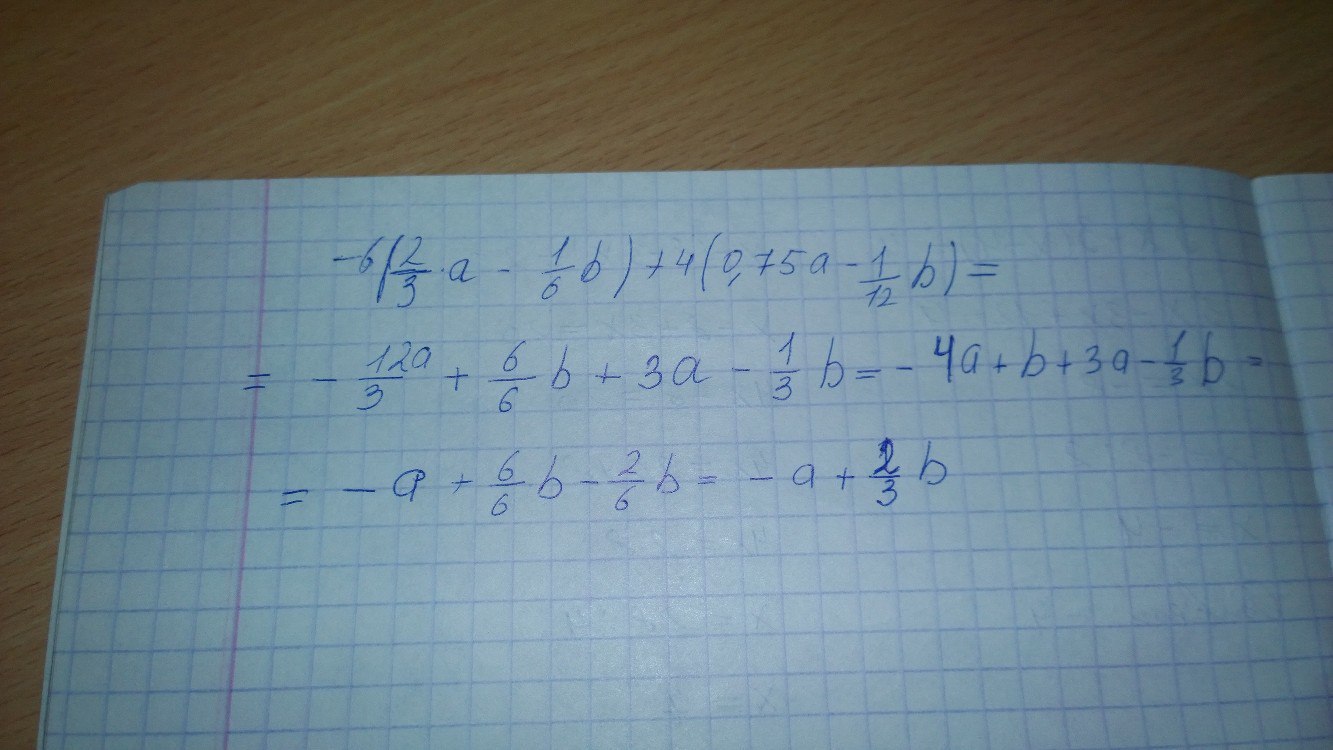 -6(2/3·a - 1/6 b) + 4(0,75a - 1/12 b) =
= - 12a/3 + 6/6 b + 3a - 1/3 b = - 4a + b + 3a - 1/3 b =
= - a + 6/6 b - 2/6 b = - a + 2/3 b